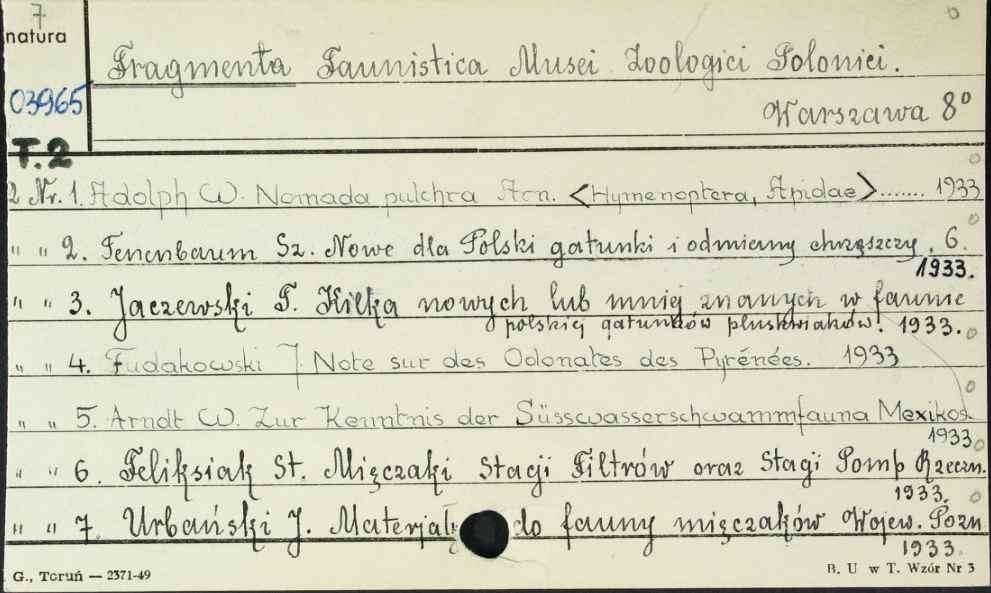 7
natura
Fragmenta Faunistica Musei Zoologici Polonici.
03965
Warszawa 8º
T.2
2 Nr. 1. Adolph W. Nomada pulchra Arn. <Hymenoptera, Apidae>....... 1933
" " 2. Tenenbaum Sz. Nowe dla Polski gatunki i odmiany chrząszczy. 6.
1933.
" " 3. Jaczewski T. Kilka nowych lub mniej znanych w faunie
polskiej gatunków pluskwiaków. 1933.
" " 4. Fudakowski J. Note sur des Odonates des Pyrénées. 1933
" " 5. Arndt W. Zur Kenntnis der Süsswasserschwammfauna Mexikos.
1933
" " 6. Feliksiak St. Mięczaki Stacji Filtrów oraz Stacji Pomp Rzeczn.
1933.
" " 7. Urbański J. Materjały do fauny mięczaków Wojew. Pozn
1933.
G., Toruń — 2371-49
B. U w T. Wzór Nr 3